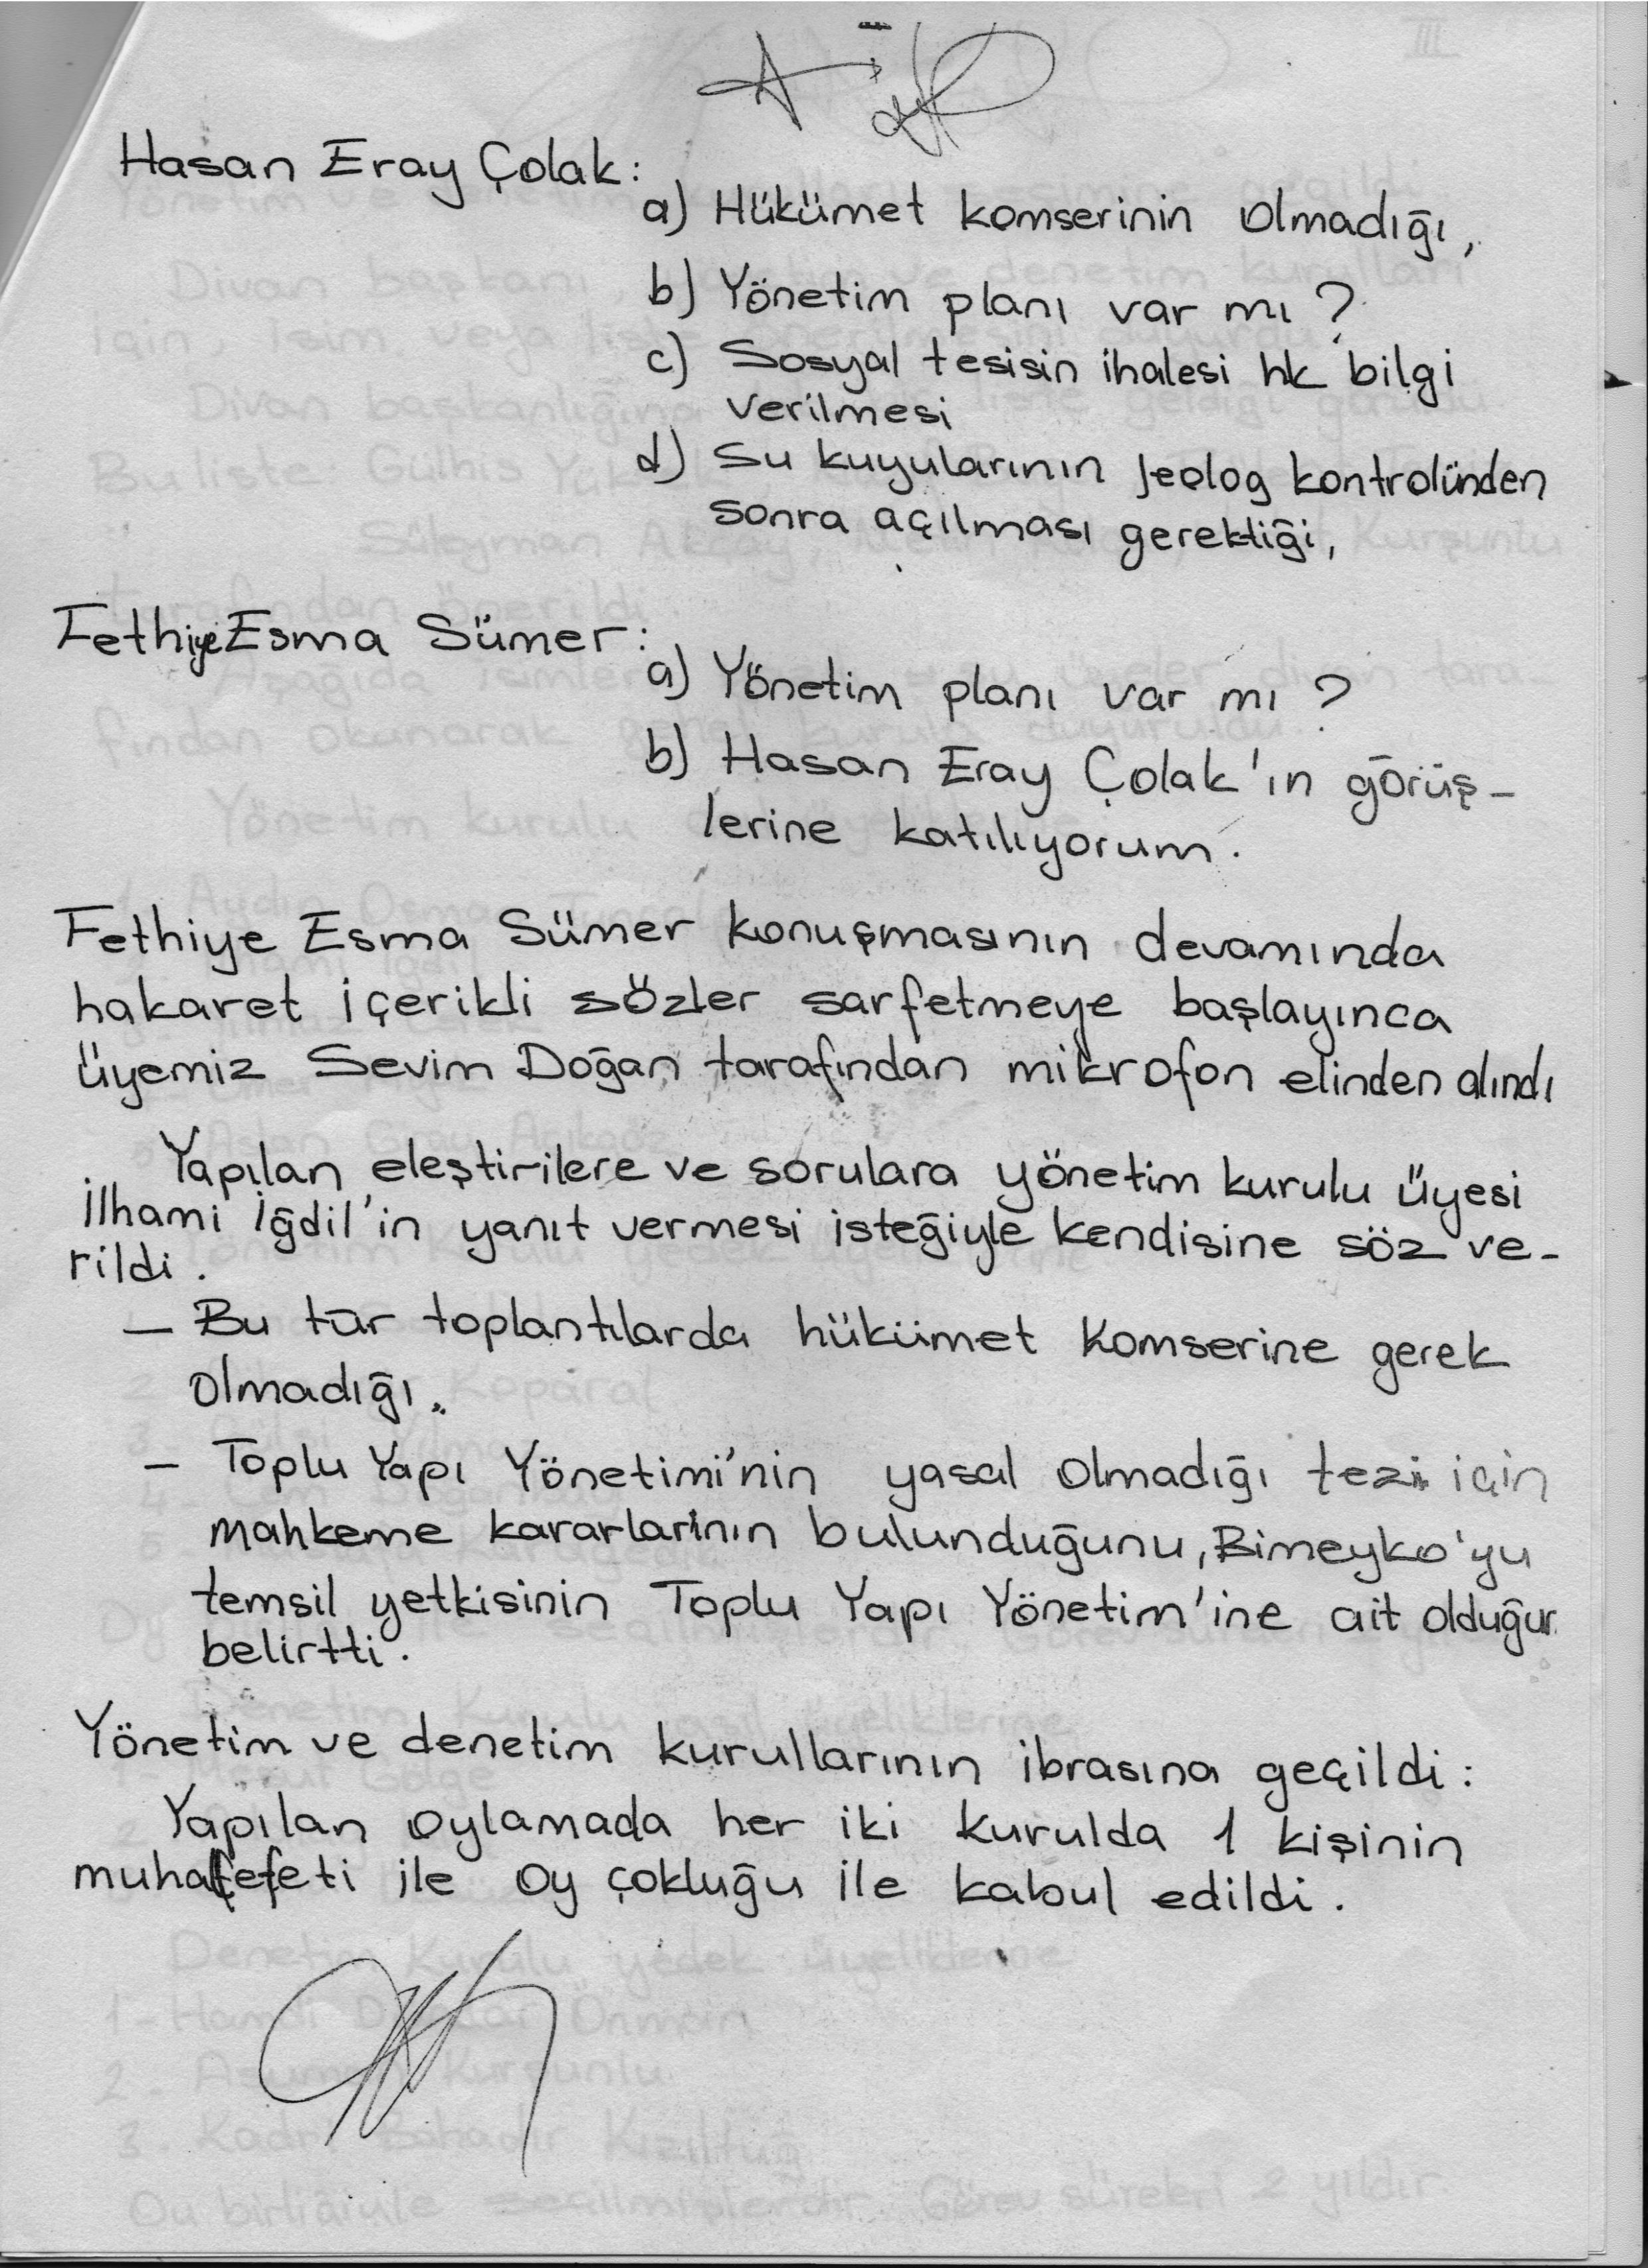 Hasan Eray Çolak:
a) Hükümet komserinin olmadığı,
b) Yönetim planı var mı ?
c) Sosyal tesisin ihalesi hk bilgi
verilmesi
d) Su kuyularının jeolog kontrolünden
sonra açılması gerektiği,
Fethiye Esma Sümer:
a) Yönetim planı var mı ?
b) Hasan Eray Çolak'ın görüş-
lerine katılıyorum.
Fethiye Esma Sümer konuşmasının devamında
hakaret içerikli sözler sarfetmeye başlayınca
üyemiz Sevim Doğan tarafından mikrofon elinden alındı
Yapılan eleştirilere ve sorulara yönetim kurulu üyesi
İlhami İğdil'in yanıt vermesi isteğiyle kendisine söz ve-
rildi.
- Bu tür toplantılarda hükümet komserine gerek
olmadığı.
- Toplu Yapı Yönetimi'nin yasal olmadığı tezi için
mahkeme kararlarının bulunduğunu, Bimeyko'yu
temsil yetkisinin Toplu Yapı Yönetim'ine ait olduğun
belirtti.
Yönetim ve denetim kurullarının ibrasına geçildi:
Yapılan oylamada her iki kurulda 1 kişinin
ile oy çokluğu ile kabul edildi.